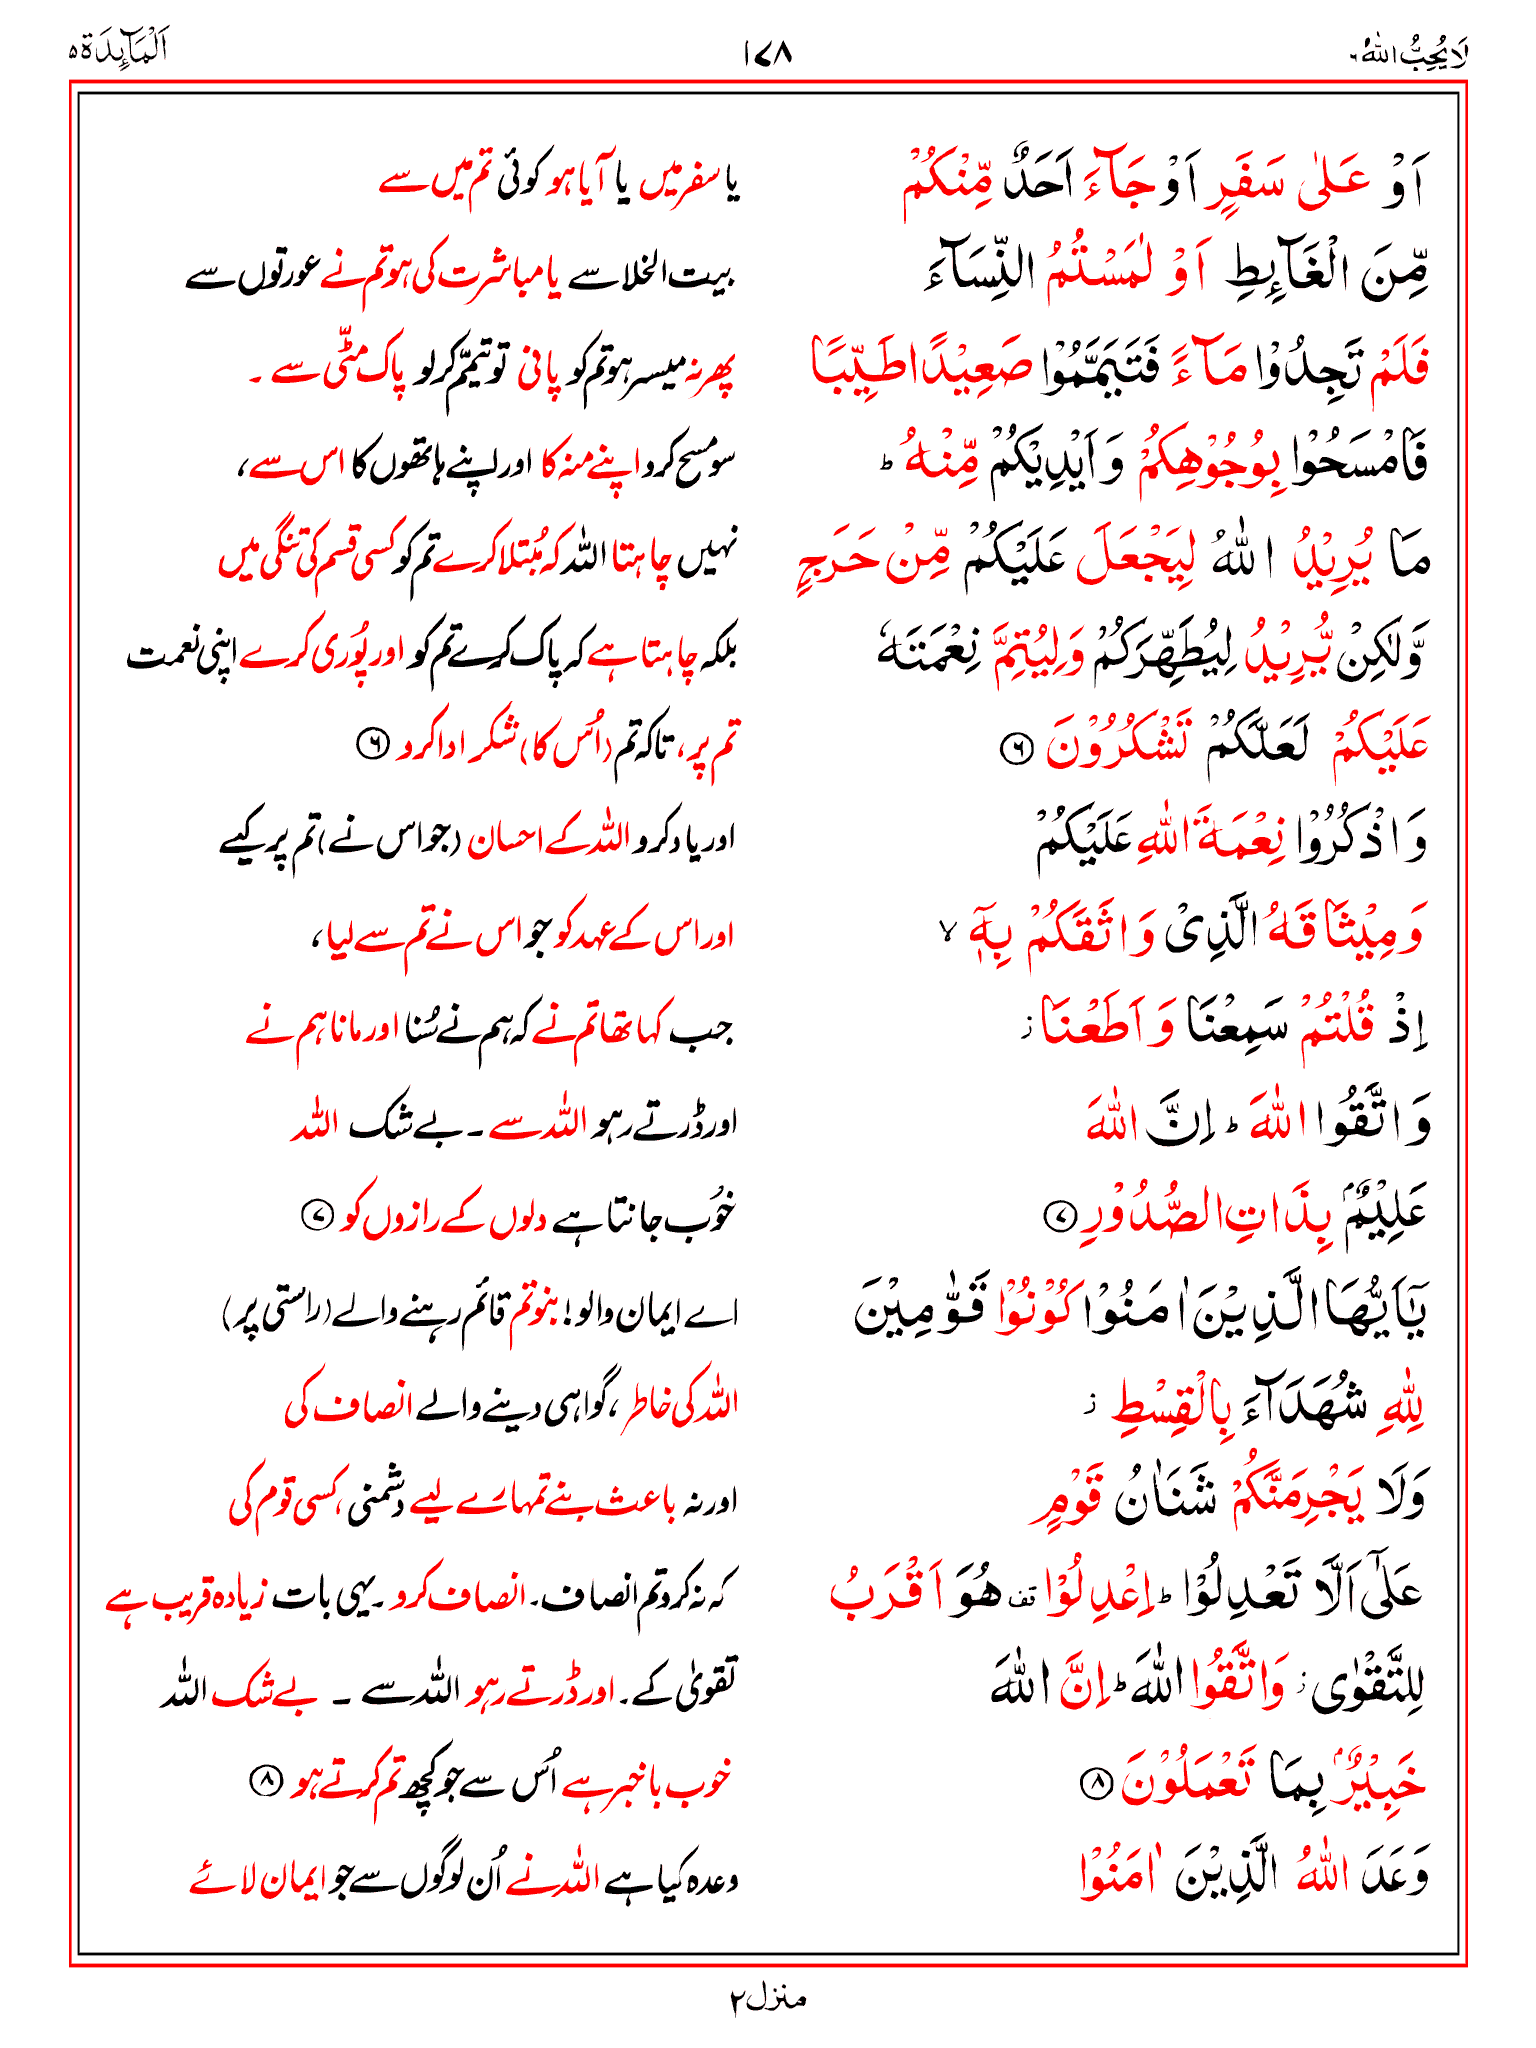 لَا یُحِبُّ اللّٰهُ ٦
١٧٨
اَلْمَآىِٕدَة ٥
اَوْ عَلٰی سَفَرٍ اَوْ جَآءَ اَحَدٌ مِّنْكُمْ
یا سفر میں یا آیا ہو کوئی تم میں سے
مِّنَ الْغَآىِٕطِ اَوْ لٰمَسْتُمُ النِّسَآءَ
بیت الخلا سے یا مباشرت کی ہو تم نے عورتوں سے
فَلَمْ تَجِدُوْا مَآءً فَتَیَمَّمُوْا صَعِیْدًا طَیِّبًا
پھر نہ میسر ہو تم کو پانی تو تیمّم کرلو پاک مٹّی سے ۔
فَامْسَحُوْا بِوُجُوْهِكُمْ وَ اَیْدِیْكُمْ مِّنْهُ ؕ
سو مسح کرو اپنے منہ کا اور اپنے ہاتھوں کا اس سے،
مَا یُرِیْدُ اللّٰهُ لِیَجْعَلَ عَلَیْكُمْ مِّنْ حَرَجٍ
نہیں چاہتا اللہ کہ مُبتلا کرے تم کو کسی قسم کی تنگی میں
وَّ لٰكِنْ یُّرِیْدُ لِیُطَهِّرَكُمْ وَ لِیُتِمَّ نِعْمَتَهٗ
بلکہ چاہتا ہے کہ پاک کرے تم کو اور پُوری کرے اپنی نعمت
عَلَیْكُمْ لَعَلَّكُمْ تَشْكُرُوْنَ ۝٦
تم پر، تاکہ تم (اُس کا) شکر ادا کرو ۝٦
وَ اذْكُرُوْا نِعْمَةَ اللّٰهِ عَلَیْكُمْ
اور یاد کرو اللہ کے احسان (جو اس نے) تم پر کیے
وَ مِیْثَاقَهُ الَّذِیْ وَاثَقَكُمْ بِهٖۤ ۙ
اور اس کے عہد کو جو اس نے تم سے لیا،
اِذْ قُلْتُمْ سَمِعْنَا وَ اَطَعْنَا ؗ
جب کہا تھا تم نے کہ ہم نے سُنا اور مانا ہم نے
وَ اتَّقُوا اللّٰهَ ؕ اِنَّ اللّٰهَ
اور ڈرتے رہو اللہ سے ۔ بے شک اللہ
عَلِیْمٌۢ بِذَاتِ الصُّدُوْرِ ۝٧
خُوب جانتا ہے دلوں کے رازوں کو ۝٧
یٰۤاَیُّهَا الَّذِیْنَ اٰمَنُوْا كُوْنُوْا قَوّٰمِیْنَ
اے ایمان والو! بنو تم قائم رہنے والے (راستی پر)
لِلّٰهِ شُهَدَآءَ بِالْقِسْطِ ؗ
اللہ کی خاطر، گواہی دینے والے انصاف کی
وَلَا یَجْرِمَنَّكُمْ شَنَاٰنُ قَوْمٍ
اور نہ باعث بنے تمہارے لیے دشمنی کسی قوم کی
عَلٰۤی اَلَّا تَعْدِلُوْا ؕ اِعْدِلُوْا ۫ هُوَ اَقْرَبُ
کہ نہ کرو تم انصاف۔ انصاف کرو ۔ یہی بات زیادہ قریب ہے
لِلتَّقْوٰی ؗ وَ اتَّقُوا اللّٰهَ ؕ اِنَّ اللّٰهَ
تقویٰ کے۔ اور ڈرتے رہو اللہ سے ۔ بے شک اللہ
خَبِیْرٌۢ بِمَا تَعْمَلُوْنَ ۝٨
خوب باخبر ہے اُس سے جو کچھ تم کرتے ہو ۝٨
وَعَدَ اللّٰهُ الَّذِیْنَ اٰمَنُوْا
وعدہ کیا ہے اللہ نے اُن لوگوں سے جو ایمان لائے
منزل ٢